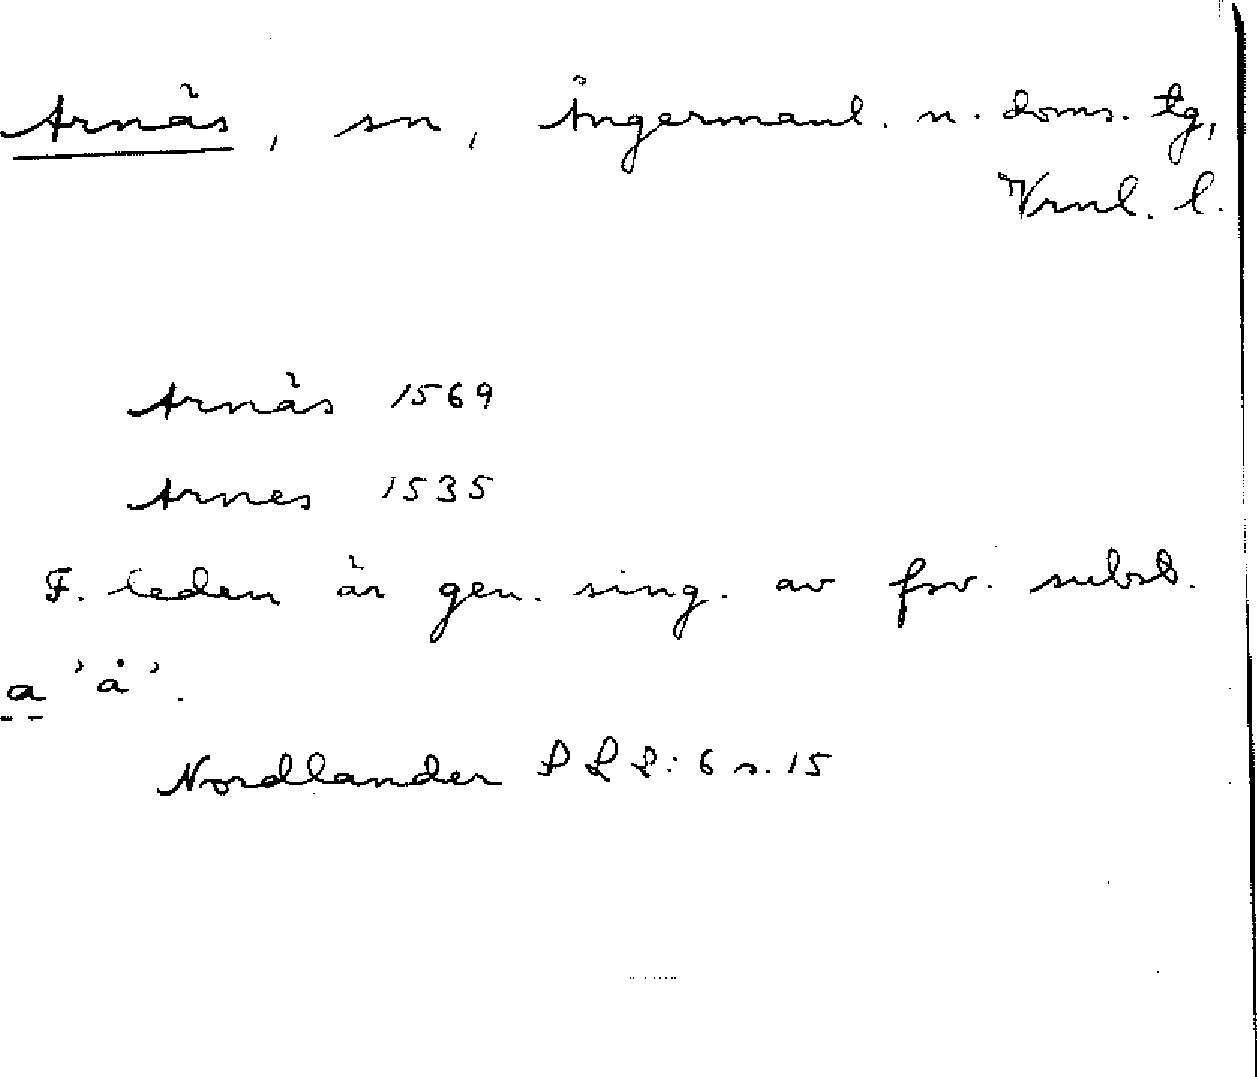 Arnäs, sn, Ångermanl. n. doms. tg,
Vrnl. l.
Arnäs 1569
Arnes 1535
F. leden är gen. sing. av fsv. subst.
a 'å'.
Nordlander :6 s. 15